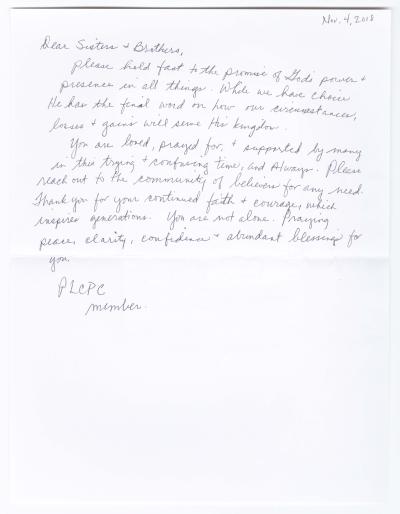 Nov. 4, 2018
Dear Sisters + Brothers,
please hold fast to the promise of God's power +
presence in all things. While we have choice
He has the final word on how our circumstances,
losses + gains will serve His kingdom.
You are loved, prayed for, + supported by many
in this trying + confusing time, and Always. Please
reach out to the community of believers for any need.
Thank you for your continued faith + courage, which
inspires generations. You are not alone. Praying
peace, clarity, confidence + abundant blessings for
you.
PLCPC
member.